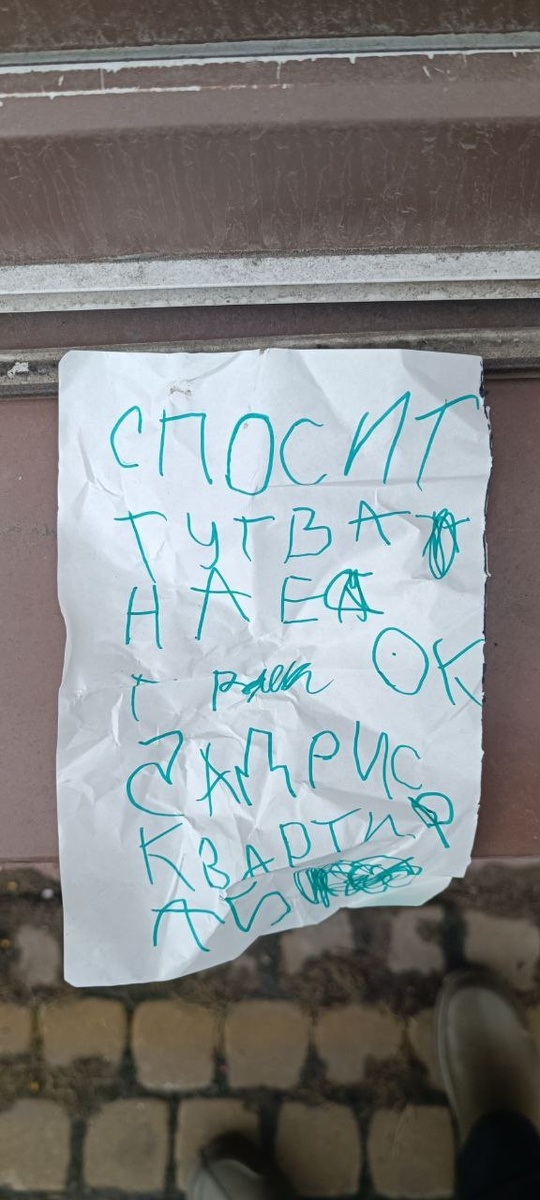 СПОСИТ
ТУТВА
НАЕ
Г ОК
ЗАДРИС
КВАРТИР
А5